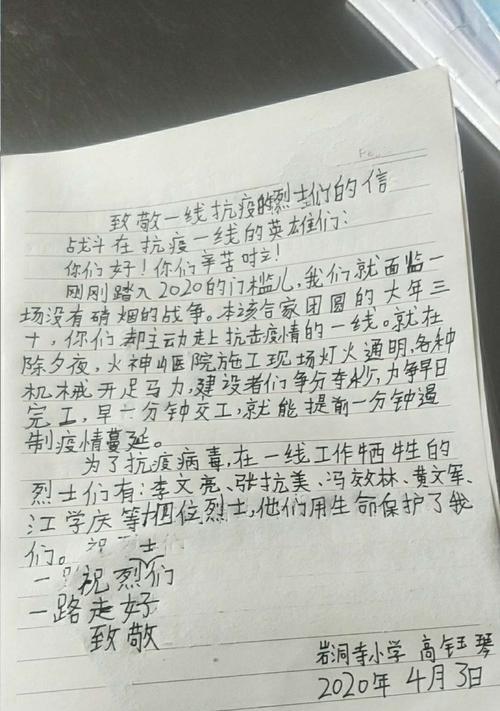 致敬一线抗疫的烈士们的信
战斗在抗疫一线的英雄们:
你们好!你们辛苦啦!
刚刚踏入2020的门槛儿,我们就面监一
场没有硝烟的战争。本该合家团圆的大年三
十,你们却主动走上抗击疫情的一线。就在
除夕夜,火神山医院施工现场灯火通明,各种
机械开足马力,建设者们争分夺秒,力争早日
完工,早一分钟交工,就能提前一分钟遏
制疫情蔓延。
为了抗疫病毒,在一线工作牺牲的
烈士们有:李文亮、张抗美、冯效林、黄文军、
江学庆等十四位烈士,他们用生命保护了我
们。
祝烈士们
一路走好
致敬
岩洞寺小学 高钰琴
2020年4月3日